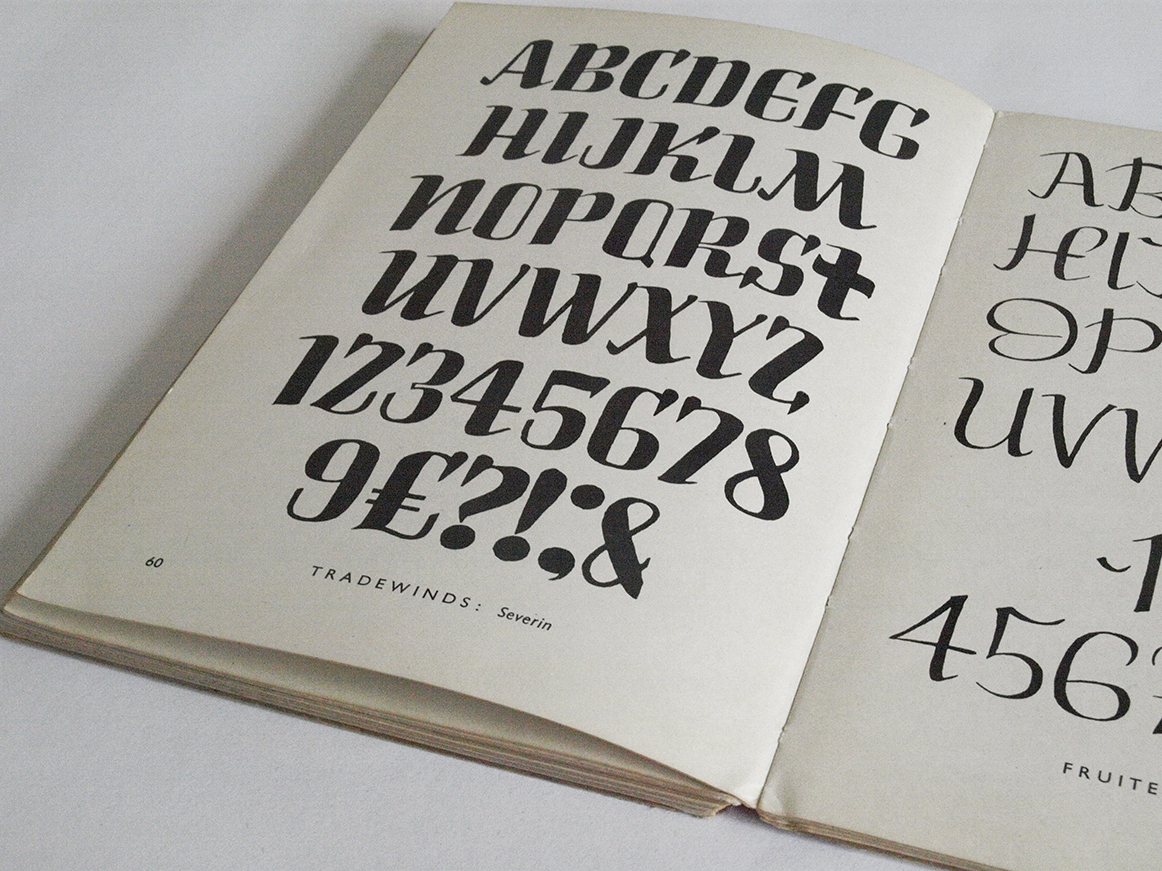 ABCDEFG
HIJKLM
NOPQRSt
UVWXYZ
12345678
9£?!:;&
60
TRADEWINDS: Severin
AB
OP
UVV
456